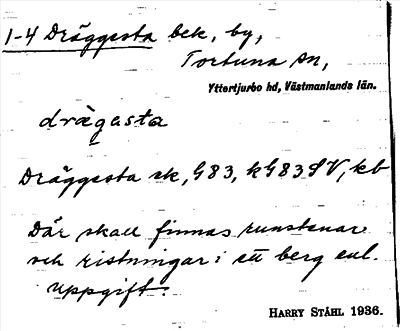 1-4 Dräggesta bek, by,
Tortuna sn,
Yttertjurbo hd, Västmanlands län.
drägasta
Dräggesta sk, G83, kG83SV, kb
Där skall finnas runstenar
och ristningar i ett berg enl.
uppgift.
HARRY STÅHL 1936.